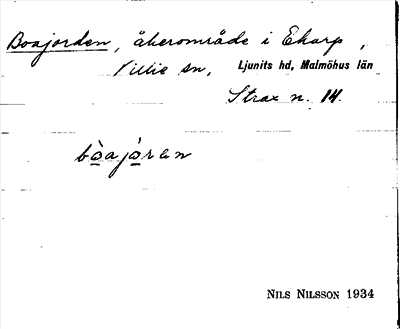 Boajorden, åkerområde i Ekarp,
Villie sn, Ljunits hd, Malmöhus län
Strax n. 14.
bò̱ajò̱ran
NILS NILSSON 1934